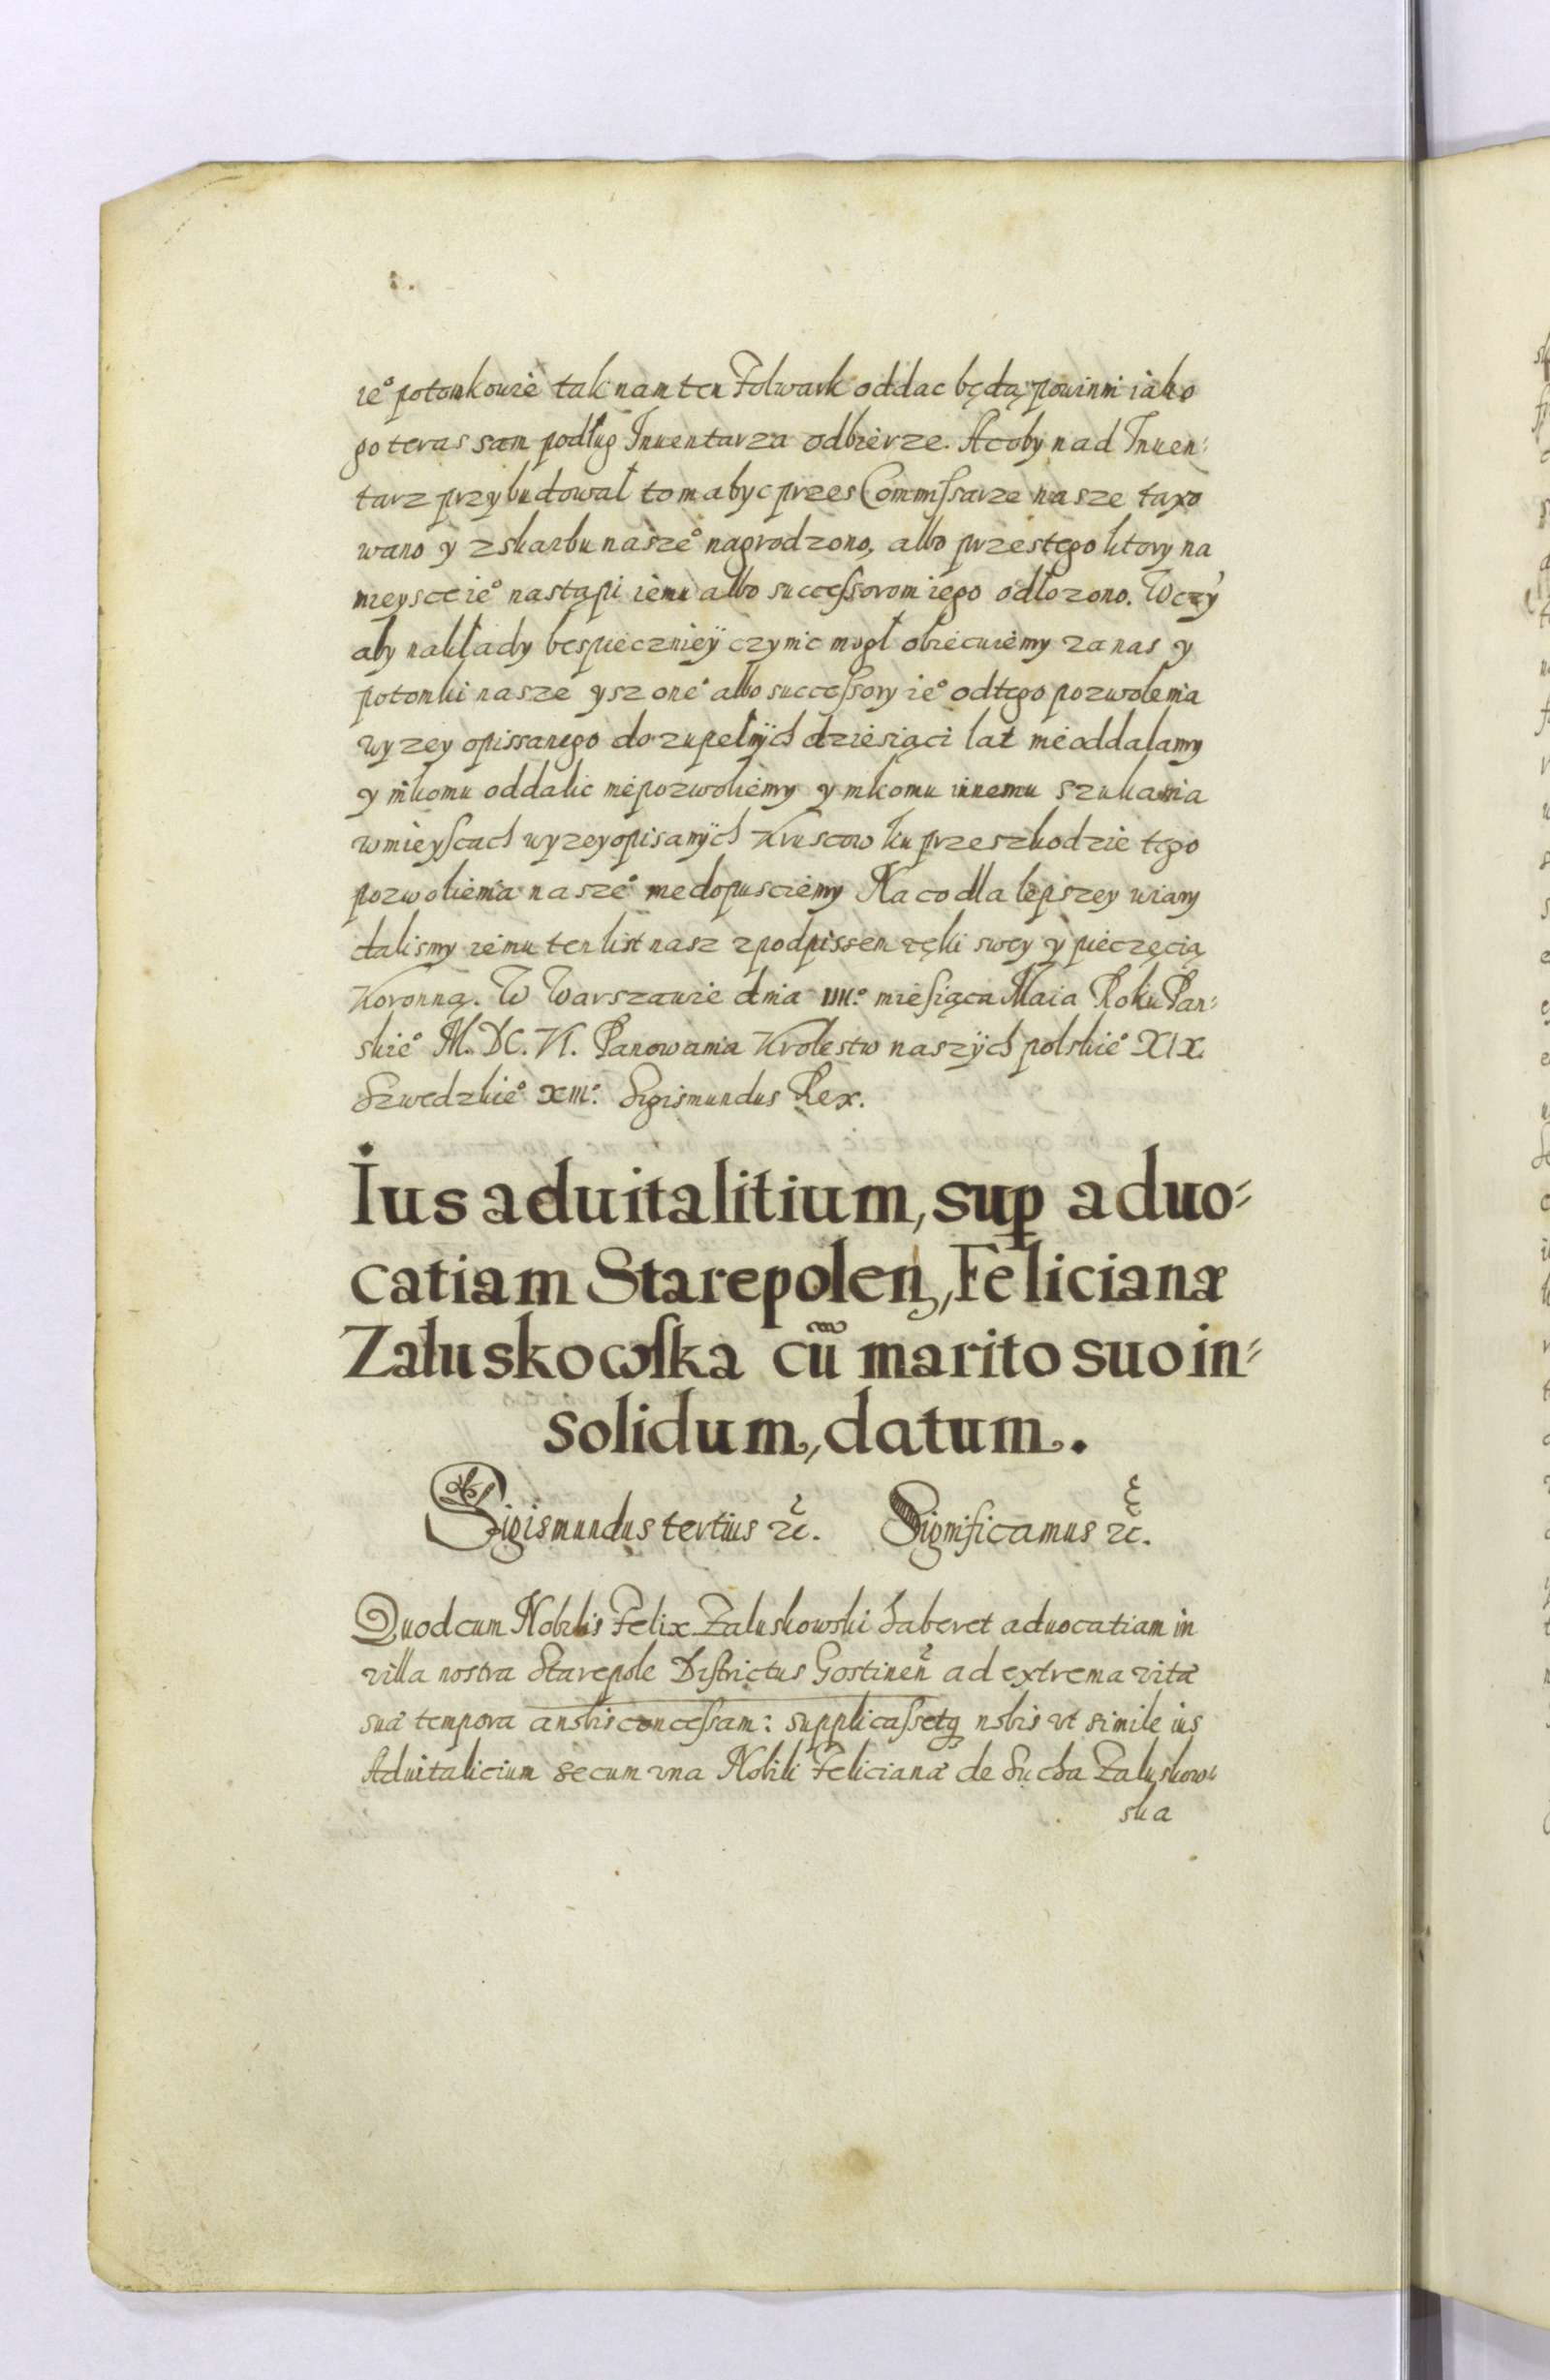 ie° potonkowie tak nam ten Folwark oddac będą powinni iako
go teras sam podług Inuentarza odbierze. Acoby nad Inuen:
tarz przybudował to ma byc przes Commiſsarze nasze taxo
wano y z skarbu nasze° nagrodzono, albo przes tego ktory na
mieysce ie° nastąpi iemu albo succeſsorom iego odłozono. W czÿ
aby nakłady bespieczniëÿ czynic mogł obiecuiemy za nas y
potomki nasze ysz one° albo succeſsory ie° od tego pozwolenia
wyzey opissanego do zupełnÿch dziesiąci lat nie oddalamy
y nikomu oddalic nie pozwoliemy y nikomu innemu szukania
w mieyſcach wyzey opisanÿch Kruscow ku przeszkodzie tego
pozwolienia nasze° nie dopusciemy Na co dla lepszey wiary
dalismy iemu ten list nasz z podpissem ręki swey y pieczęcią
Koronną. W Warszawie dnia IIII.° mieſiąca Maia Roku Pan:
skie° M. DC. VI. Panowania Krolestw naszÿch polskie° XIX.
Szwedzkie° XIII.° Sigismundus Rex.
Ius aduitalitium, suꝑ aduo:
catiam Starepolen, Felicianæ
Załuskowſka cū marito suo in:
solidum, datum.
Sigismundus tertius ⁊c̃. Significamus ⁊c̃.
Quod cum Nobilis Felix Zaluskowski haberet aduocatiam in
villa nostra Starepole Diſtrictus Gostinen̄ ad extrema vitæ
suæ tempora a nobis conceſsam: supplicaſsetq nobis vt simile ius
Aduitalicium secum vna Nobili Felicianæ de Sucha Zaluskow:
ska